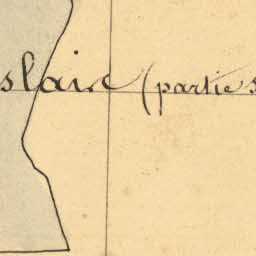 slair (partie s